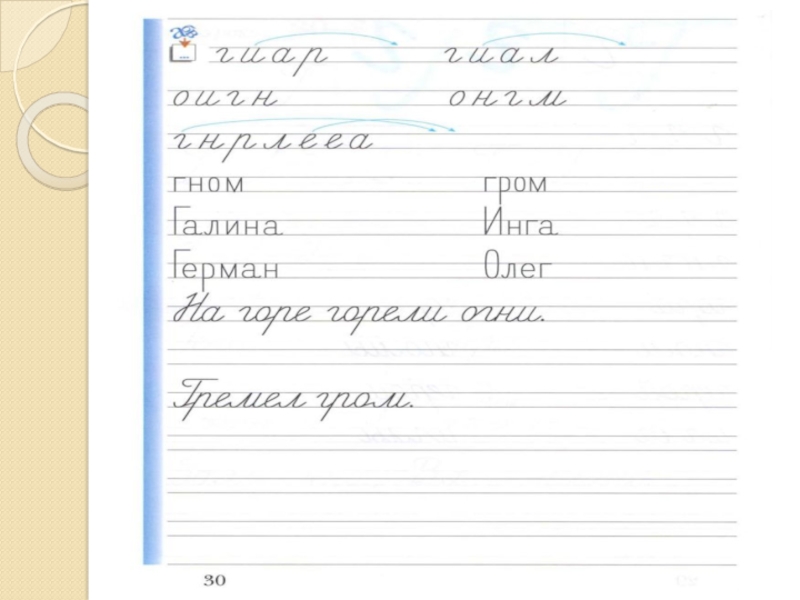 г и а р г и а л
о и г н о н г м
г н р л е е а
гном гром
Галина Инга
Герман Олег
На горе горели огни.
Гремел гром.
30